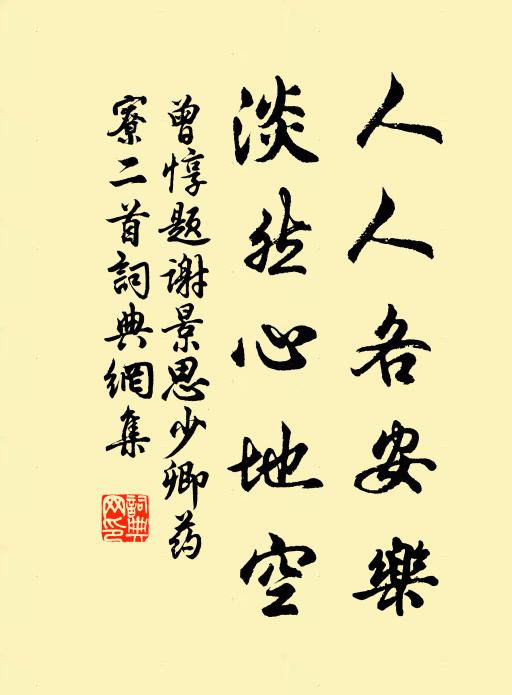 人人各安樂
淡然心地空
曾惇题謝景思少卿药
寮二首詞典網集
詞典
网印